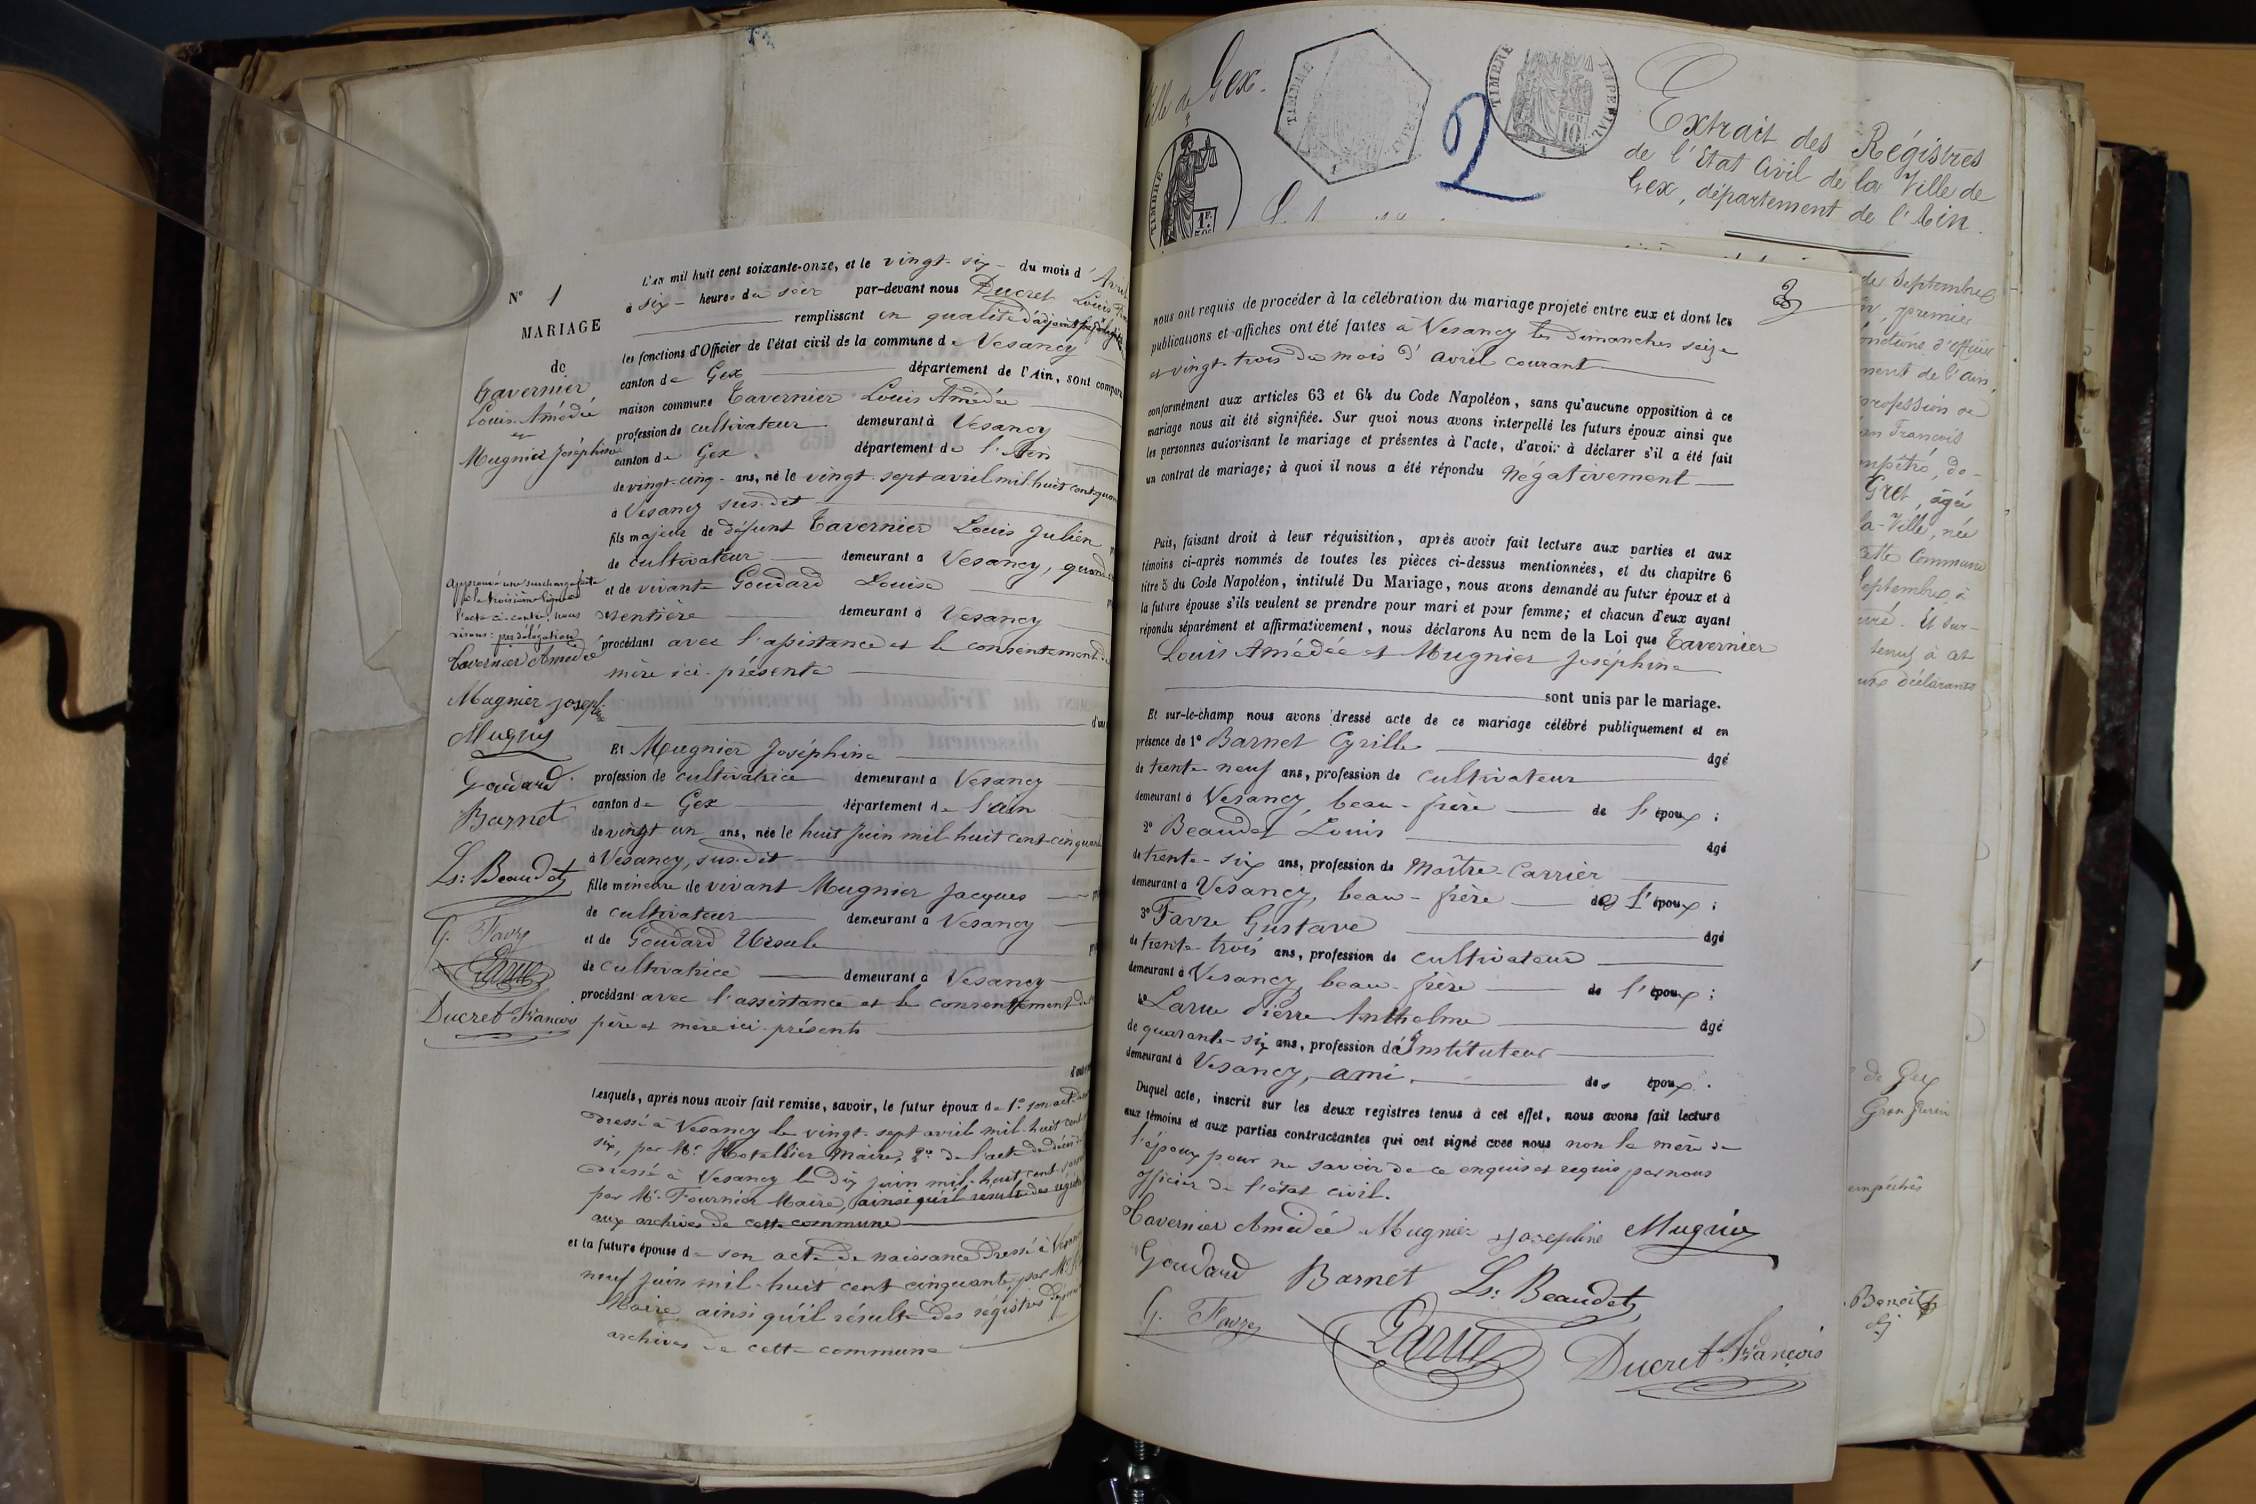 N° 1
MARIAGE
de
Tavernier
Louis Amédé
et
Mugnier Joséphine
Approuvé une surcharge faite
à la troisième ligne de
l'acte ci-contre, nous
disons: par délégation
Tavernier Amedée
Mugnier Joséphine
Mugnier
Goudard
Barnet
Ls: Beaudet
G. Favre
Larue
Ducret François
L'AN mil huit cent soixante-onze, et le vingt-six du mois d'Avril
à six heures du soir par-devant nous Ducret Louis
remplissant en qualité d'adjoint par délégation
les fonctions d'Officier de l'état civil de la commune de Vesancy
canton de Gex département de l'Ain, sont comparu
maison commune Tavernier Louis Amédée
profession de cultivateur demeurant à Vesancy
canton de Gex département de l'Ain
de vingt-cinq ans, né le vingt-sept avril mil huit cent
à Vesancy sus-dit
fils majeur de défunt Tavernier Louis Julien
de cultivateur demeurant à Vesancy, quand
et de vivante Goudard Louise
rentière demeurant à Vesancy
procédant avec l'assistance et le consentement de
mère ici présente
Et Mugnier Joséphine
profession de cultivatrice demeurant à Vesancy
canton de Gex département de l'Ain
de vingt un ans, née le huit Juin mil huit cent cinquante
à Vesancy, sus-dit
fille mineure de vivant Mugnier Jacques
de cultivateur demeurant à Vesancy
et de Goudard Ursule
de cultivatrice demeurant à Vesancy
procédant avec l'assistance et le consentement de
père et mère ici présents
Lesquels, après nous avoir fait remise, savoir, le futur époux de 1° son acte
dressé à Vesancy le vingt-sept avril mil-huit cent
six, par Mr. Hotellier Maire, 2° de l'acte de décès de
dressé à Vesancy le dix juin mil-huit cent
par Mr. Fournier Maire, ainsi qu'il résulte des registres
aux archives de cette commune
et la future épouse de son acte de naissance dressé à Vesancy
neuf juin mil-huit cent cinquante, par Mr
Maire, ainsi qu'il résulte des registres
archives de cette commune
Ville de Gex.
TIMBRE
TIMBRE IMPERIAL
10
TIMBRE
1F.
50c
2
Extrait des Régistres
de l'Etat Civil de la Ville de
Gex, département de l'Ain.
3
nous ont requis de procéder à la célébration du mariage projeté entre eux et dont les
publications et affiches ont été faites à Vesancy les dimanches seize
et vingt-trois du mois d'avril courant
conformément aux articles 63 et 64 du Code Napoléon, sans qu'aucune opposition à ce
mariage nous ait été signifiée. Sur quoi nous avons interpellé les futurs époux ainsi que
les personnes autorisant le mariage et présentes à l'acte, d'avoir à déclarer s'il a été fait
un contrat de mariage; à quoi il nous a été répondu Négativement
Puis, faisant droit à leur réquisition, après avoir fait lecture aux parties et aux
témoins ci-après nommés de toutes les pièces ci-dessus mentionnées, et du chapitre 6
titre 5 du Code Napoléon, intitulé Du Mariage, nous avons demandé au futur époux et à
la future épouse s'ils veulent se prendre pour mari et pour femme; et chacun d'eux ayant
répondu séparément et affirmativement, nous déclarons Au nom de la Loi que Tavernier
Louis Amédée et Mugnier Joséphine
sont unis par le mariage.
Et sur-le-champ nous avons dressé acte de ce mariage célébré publiquement et en
présence de 1° Barnet Cyrille âgé
de trente-neuf ans, profession de cultivateur
demeurant à Vesancy, beau-frère de l'époux;
2° Beaudet Louis âgé
de trente-six ans, profession de Maître-Carrier
demeurant à Vesancy, beau-frère de l'époux;
3° Favre Gustave âgé
de trente-trois ans, profession de cultivateur
demeurant à Vesancy, beau-frère de l'époux;
4° Larue Pierre Anthelme âgé
de quarante-six ans, profession d'Instituteur
demeurant à Vesancy, ami des époux.
Duquel acte, inscrit sur les deux registres tenus à cet effet, nous avons fait lecture
aux témoins et aux parties contractantes qui ont signé avec nous non la mère de
l'époux pour ne savoir de ce enquis et requis par nous
officier de l'état civil.
Tavernier Amédée Mugnier Joséphine Mugnier
Goudard Barnet Ls: Beaudet
G. Favre Larue Ducret François
de Septembre
premier
nent de l'Ain,
profession de
François
Gret, âgée
la-Ville, née
cette Commune
Septembre, à
Et sur-
tenus à cet
déclarants
de Gex
empêchés
Benoit